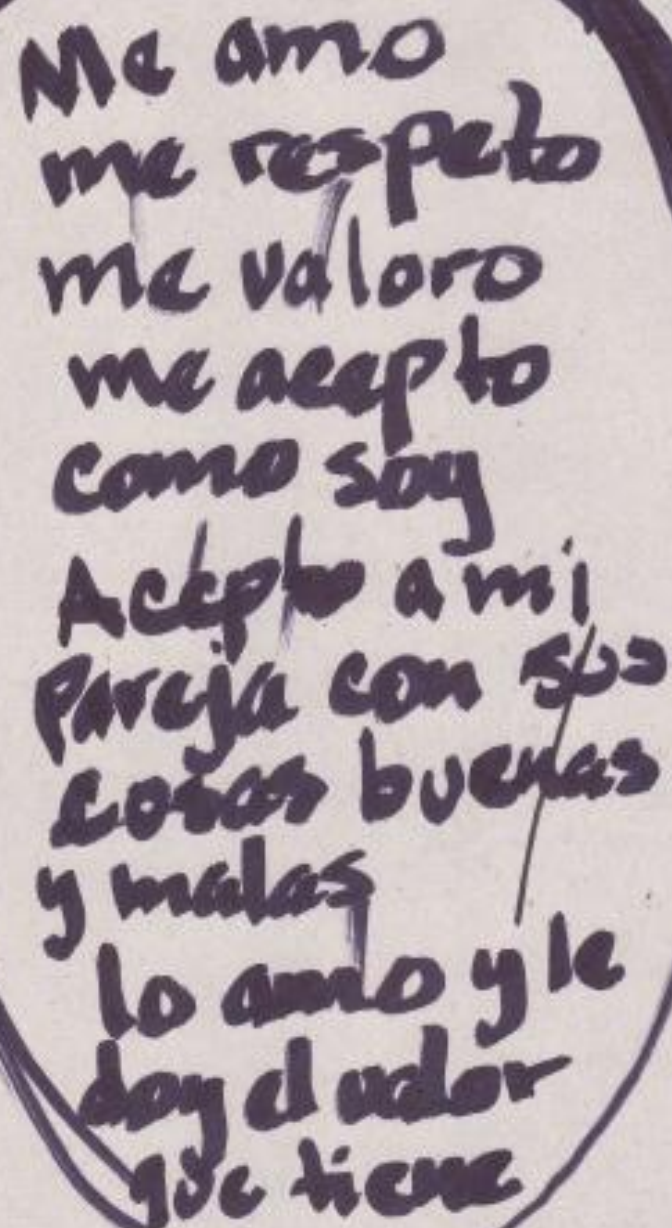 Me amo
me respeto
me valoro
me acepto
como soy
Acepto a mi
pareja con sus
cosas buenas
y malas
lo amo y le
doy el valor
que tiene